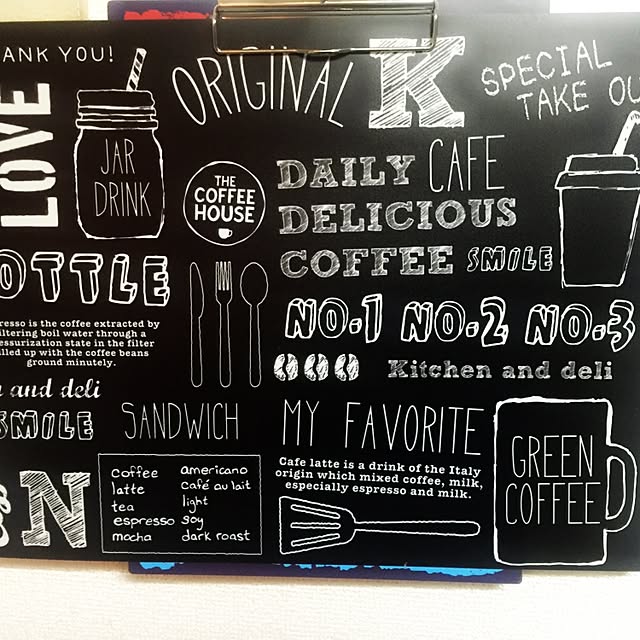 ANK YOU!
LOVE
JAR
DRINK
ORIGINAL
K
SPECIAL
TAKE OU
THE
COFFEE
HOUSE
DAILY CAFE
DELICIOUS
COFFEE SMILE
OTTLE
NO.1 NO.2 NO.3
resso is the coffee extracted by
iltering boil water through a
essurization state in the filter
lled up with the coffee beans
ground minutely.
Kitchen and deli
n and deli
SMILE
SANDWICH
MY FAVORITE
Cafe latte is a drink of the Italy
origin which mixed coffee, milk,
especially espresso and milk.
GREEN
COFFEE
N
coffee americano
latte café au lait
tea light
espresso soy
mocha dark roast